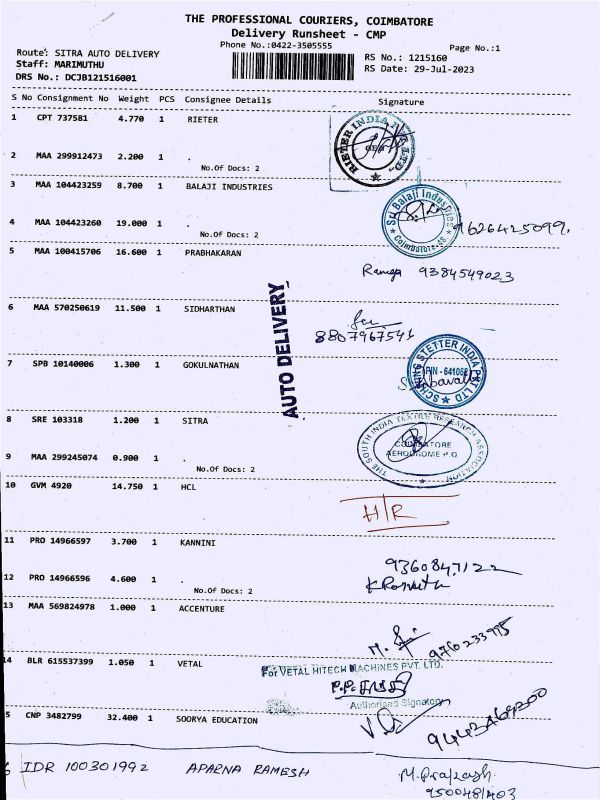 THE PROFESSIONAL COURIERS, COIMBATORE
Delivery Runsheet - CMP
Phone No.:0422-3505555
Page No.:1
Route: SITRA AUTO DELIVERY
RS No.: 1215160
Staff: MARIMUTHU
RS Date: 29-Jul-2023
DRS No.: DCJB121516001
S No Consignment No Weight PCS Consignee Details Signature
1 CPT 737581 4.770 1 RIETER
RIETER INDIA LTD.
2 MAA 299912473 2.200 1 .
No.Of Docs: 2
3 MAA 104423259 8.700 1 BALAJI INDUSTRIES
Sri Balaji Industries
Coimbatore-48
4 MAA 104423260 19.000 1 .
9626425099.
No.Of Docs: 2
5 MAA 100415706 16.600 1 PRABHAKARAN
9384549023
6 MAA 570250619 11.500 1 SIDHARTHAN
8807967541
AUTO DELIVERY
7 SPB 10140006 1.300 1 GOKULNATHAN
SCHWING STETTER INDIA PVT LTD
PIN - 641062
8 SRE 103318 1.200 1 SITRA
THE SOUTH INDIA TEXTILE RESEARCH ASSOCIATION
COIMBATORE
AERODROME P.O
9 MAA 299245074 0.900 1 .
No.Of Docs: 2
10 GVM 4920 14.750 1 HCL
H/R
11 PRO 14966597 3.700 1 KANNINI
12 PRO 14966596 4.600 1 .
No.Of Docs: 2
13 MAA 569824978 1.000 1 ACCENTURE
14 BLR 615537399 1.050 1 VETAL
For VETAL HITECH MACHINES PVT. LTD.
Authorised Signatory
5 CNP 3482799 32.400 1 SOORYA EDUCATION
IDR 100301992 APARNA RAMESH
M. Prakash
9500481403